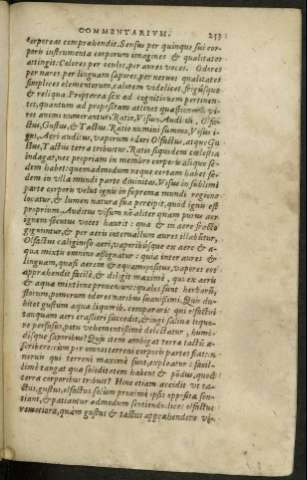 COMMENTARIVM. 253
corporeas comprehendit. Sensus per quinque sui cor-
poris instrumenta corporum imagines & qualitates
attingit. Colores per oculos, per aures voces. Odores
per nares, per linguam sapores, per nervos qualitates
simplices elementorum, calorem videlicet, frigúsque
& reliqua. Propterea sex ad cognitionem pertinen-
tes, quantum ad propositam attinet
res animi numerantur: Ratio, Visus, Auditus, Olfa-
ctus, Gustus, & Tactus. Ratio numini summo, Visus i-
gni, Aeri auditus, vaporum odori Olfactus, atque Gu-
stus, Tactus terræ tribuitur. Ratio siquidem cælestia
indagat, nec propriam in membro corporis aliquo se-
dem habet: quemadmodum neque certam habet se-
dem in vlla mundi parte diuinitas. Visus in sublimi
parte corporis velut ignis in suprema mundi regione
locatur, & lumen natura sua percipit, quod ignis est
proprium. Auditus non aliter quàm purus aer
voces haurit: quæ & in aere fracto
gignuntur, & per aeris interuallum aures illabuntur,
Olfactus caliginoso aeri, vaporibúsque ex aere & a-
qua mixtis omnino assignatur: quia inter aures &
linguam, quasi aerem & aquam positus, vapores eos
apprehendit facilè, & diligit maximè, qui ex aeris
& aquæ mixtione proueniunt: quales sunt herbarum,
florum, pomorum odores naribus suauissimi. Quis du-
bitet gustum aquæ liquori comparare: qui olfactui
tanquam aeri crassiori succedit, & iugi saliuæ liquo-
re perfusus, potu vehementissimè delectatur, humi-
disque saporibus? Quis item ambigat terræ tactum a-
scribere: cùm per vniuersas terreni corporis partes fiat:
neruis qui terreni maximè sunt, expleatur: facil-
limè tangat quæ soliditatem habent & põdus, quæ
terra corporibus tribuit? Hinc etiam accidit vt ta-
ctus, gustus, olfactus solùm proximè ipsis opposita sen-
tiant, & patiantur admodum sentiendo. licet olfactus
remotiora, quàm gustus & tactus apprehendere vi-